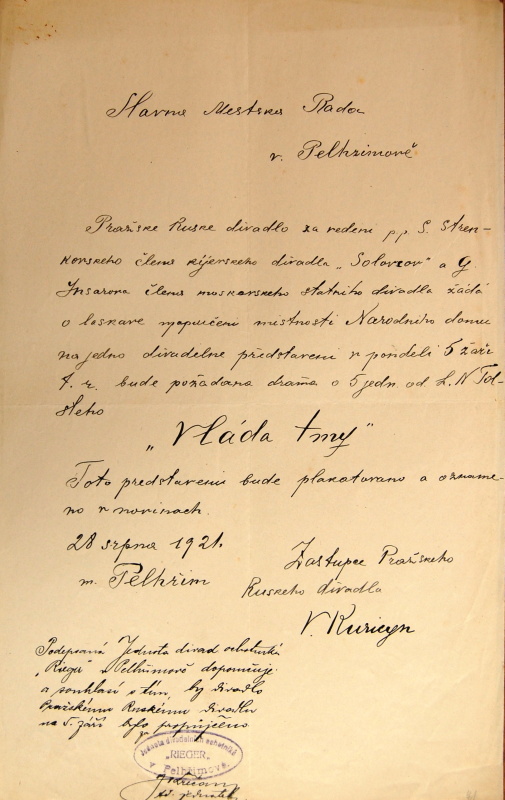 Slavna Mestska Rada
v. Pelhrimově
Pražske Ruske divadlo za vedeni pp S. Stren-
kovskeho člena kijevskeho divadla „Solovzov" a G
Insarova člena moskevskeho statniho divadla žádá
o laskave propučeni mistnosti Narodniho domu
na jedno divadelne představeni v pondeli 5 záři
t. r. bude požadana drama o 5 jedn. od L. N Tol-
steho
„Vláda tmy"
Toto predstaveni bude plakatovano a ozname-
no v novinach.
28 srpna 1921.
m. Pelhřim
Zastupce Pražskeho
Ruskeho divadla
Podepsaná Jednota divad. ochotníků
„Rieger" v Pelhřimově doporučuje
a souhlasí s tím, by divadlo
Pražskému Ruskému divadlu
na 5. září bylo propůjčeno
Jednota divadelních ochotníků
„RIEGER"
v Pelhřimově.